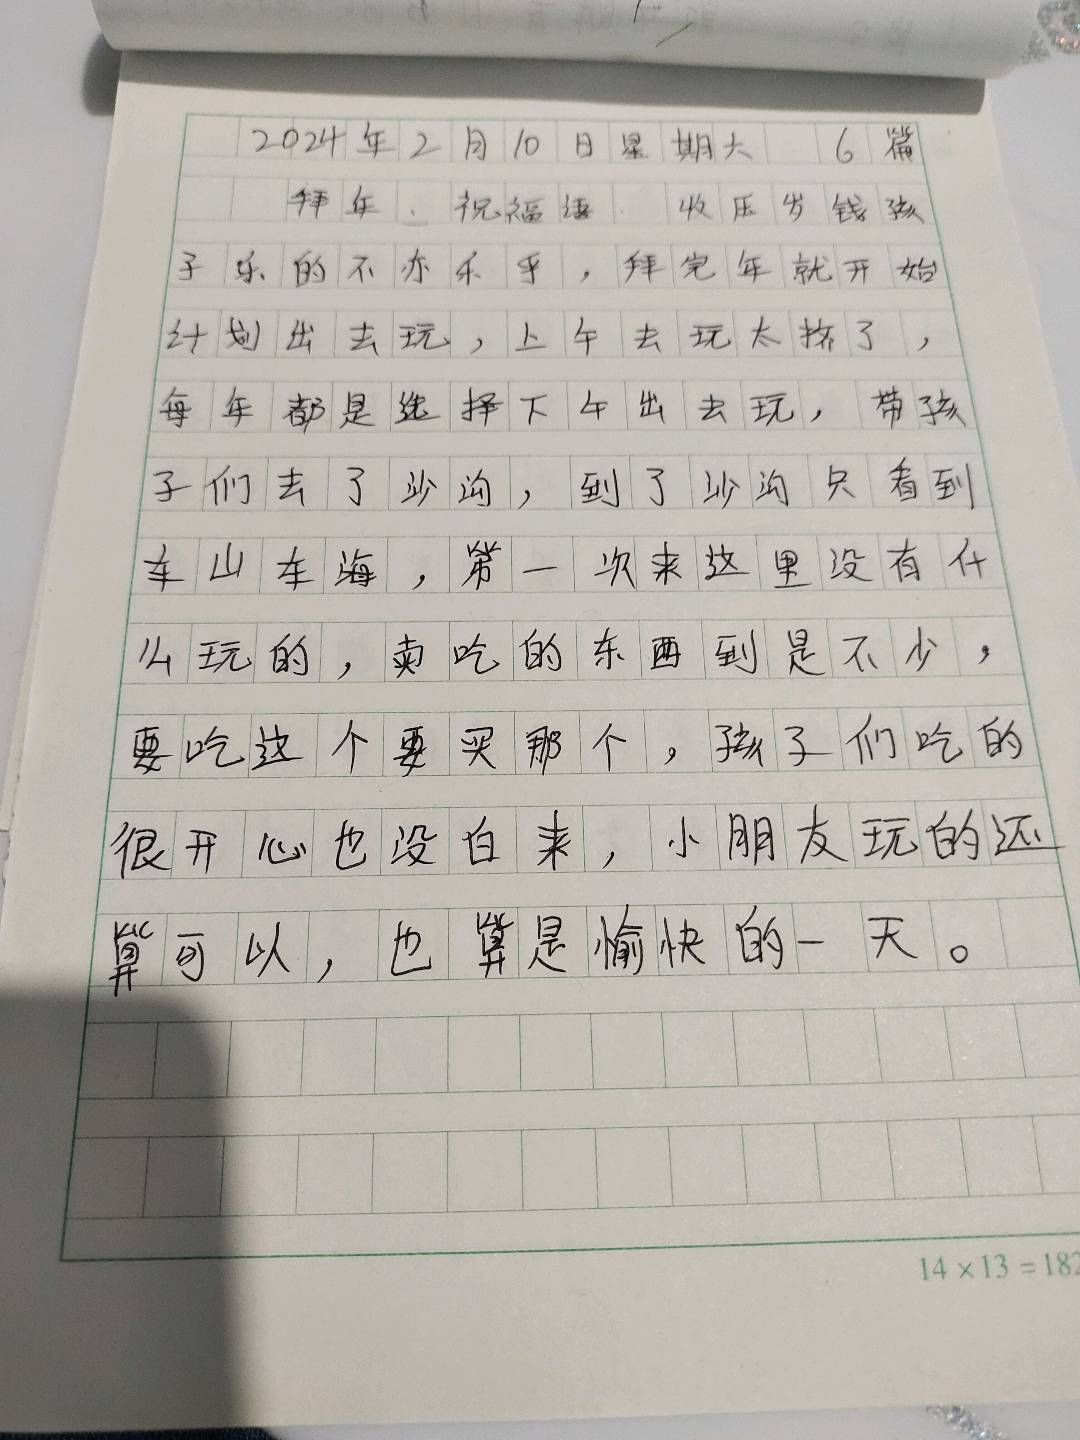 2024年2月10日星期六 6篇
拜年、祝福语、收压岁钱孩
子乐的不亦乐乎，拜完年就开始
计划出去玩，上午去玩太挤了，
每年都是选择下午出去玩，带孩
子们去了沙沟，到了沙沟只看到
车山车海，第一次来这里没有什
么玩的，卖吃的东西到是不少，
要吃这个要买那个，孩子们吃的
很开心也没白来，小朋友玩的还
算可以，也算是愉快的一天。
14×13=182